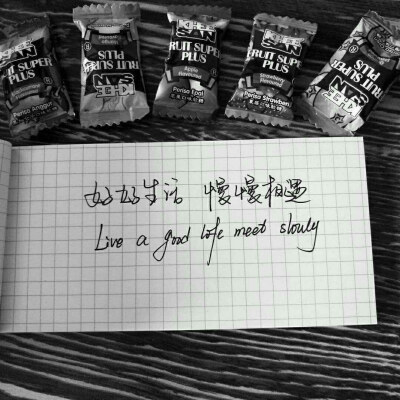 KHEE
SAN
FRUIT SUPER
PLUS
Perisa Anggur
KHEE
SAN
FRUIT SUPER
PLUS
KHEE
SAN
FRUIT SUPER
PLUS
Apple
Flavoured
Perisa Epal
KHEE
SAN
FRUIT SUPER
PLUS
Strawberry
Flavoured
Perisa Strawberi
KHEE
SAN
FRUIT SUPER
PLUS
好好生活 慢慢相遇
Live a good life meet slowly